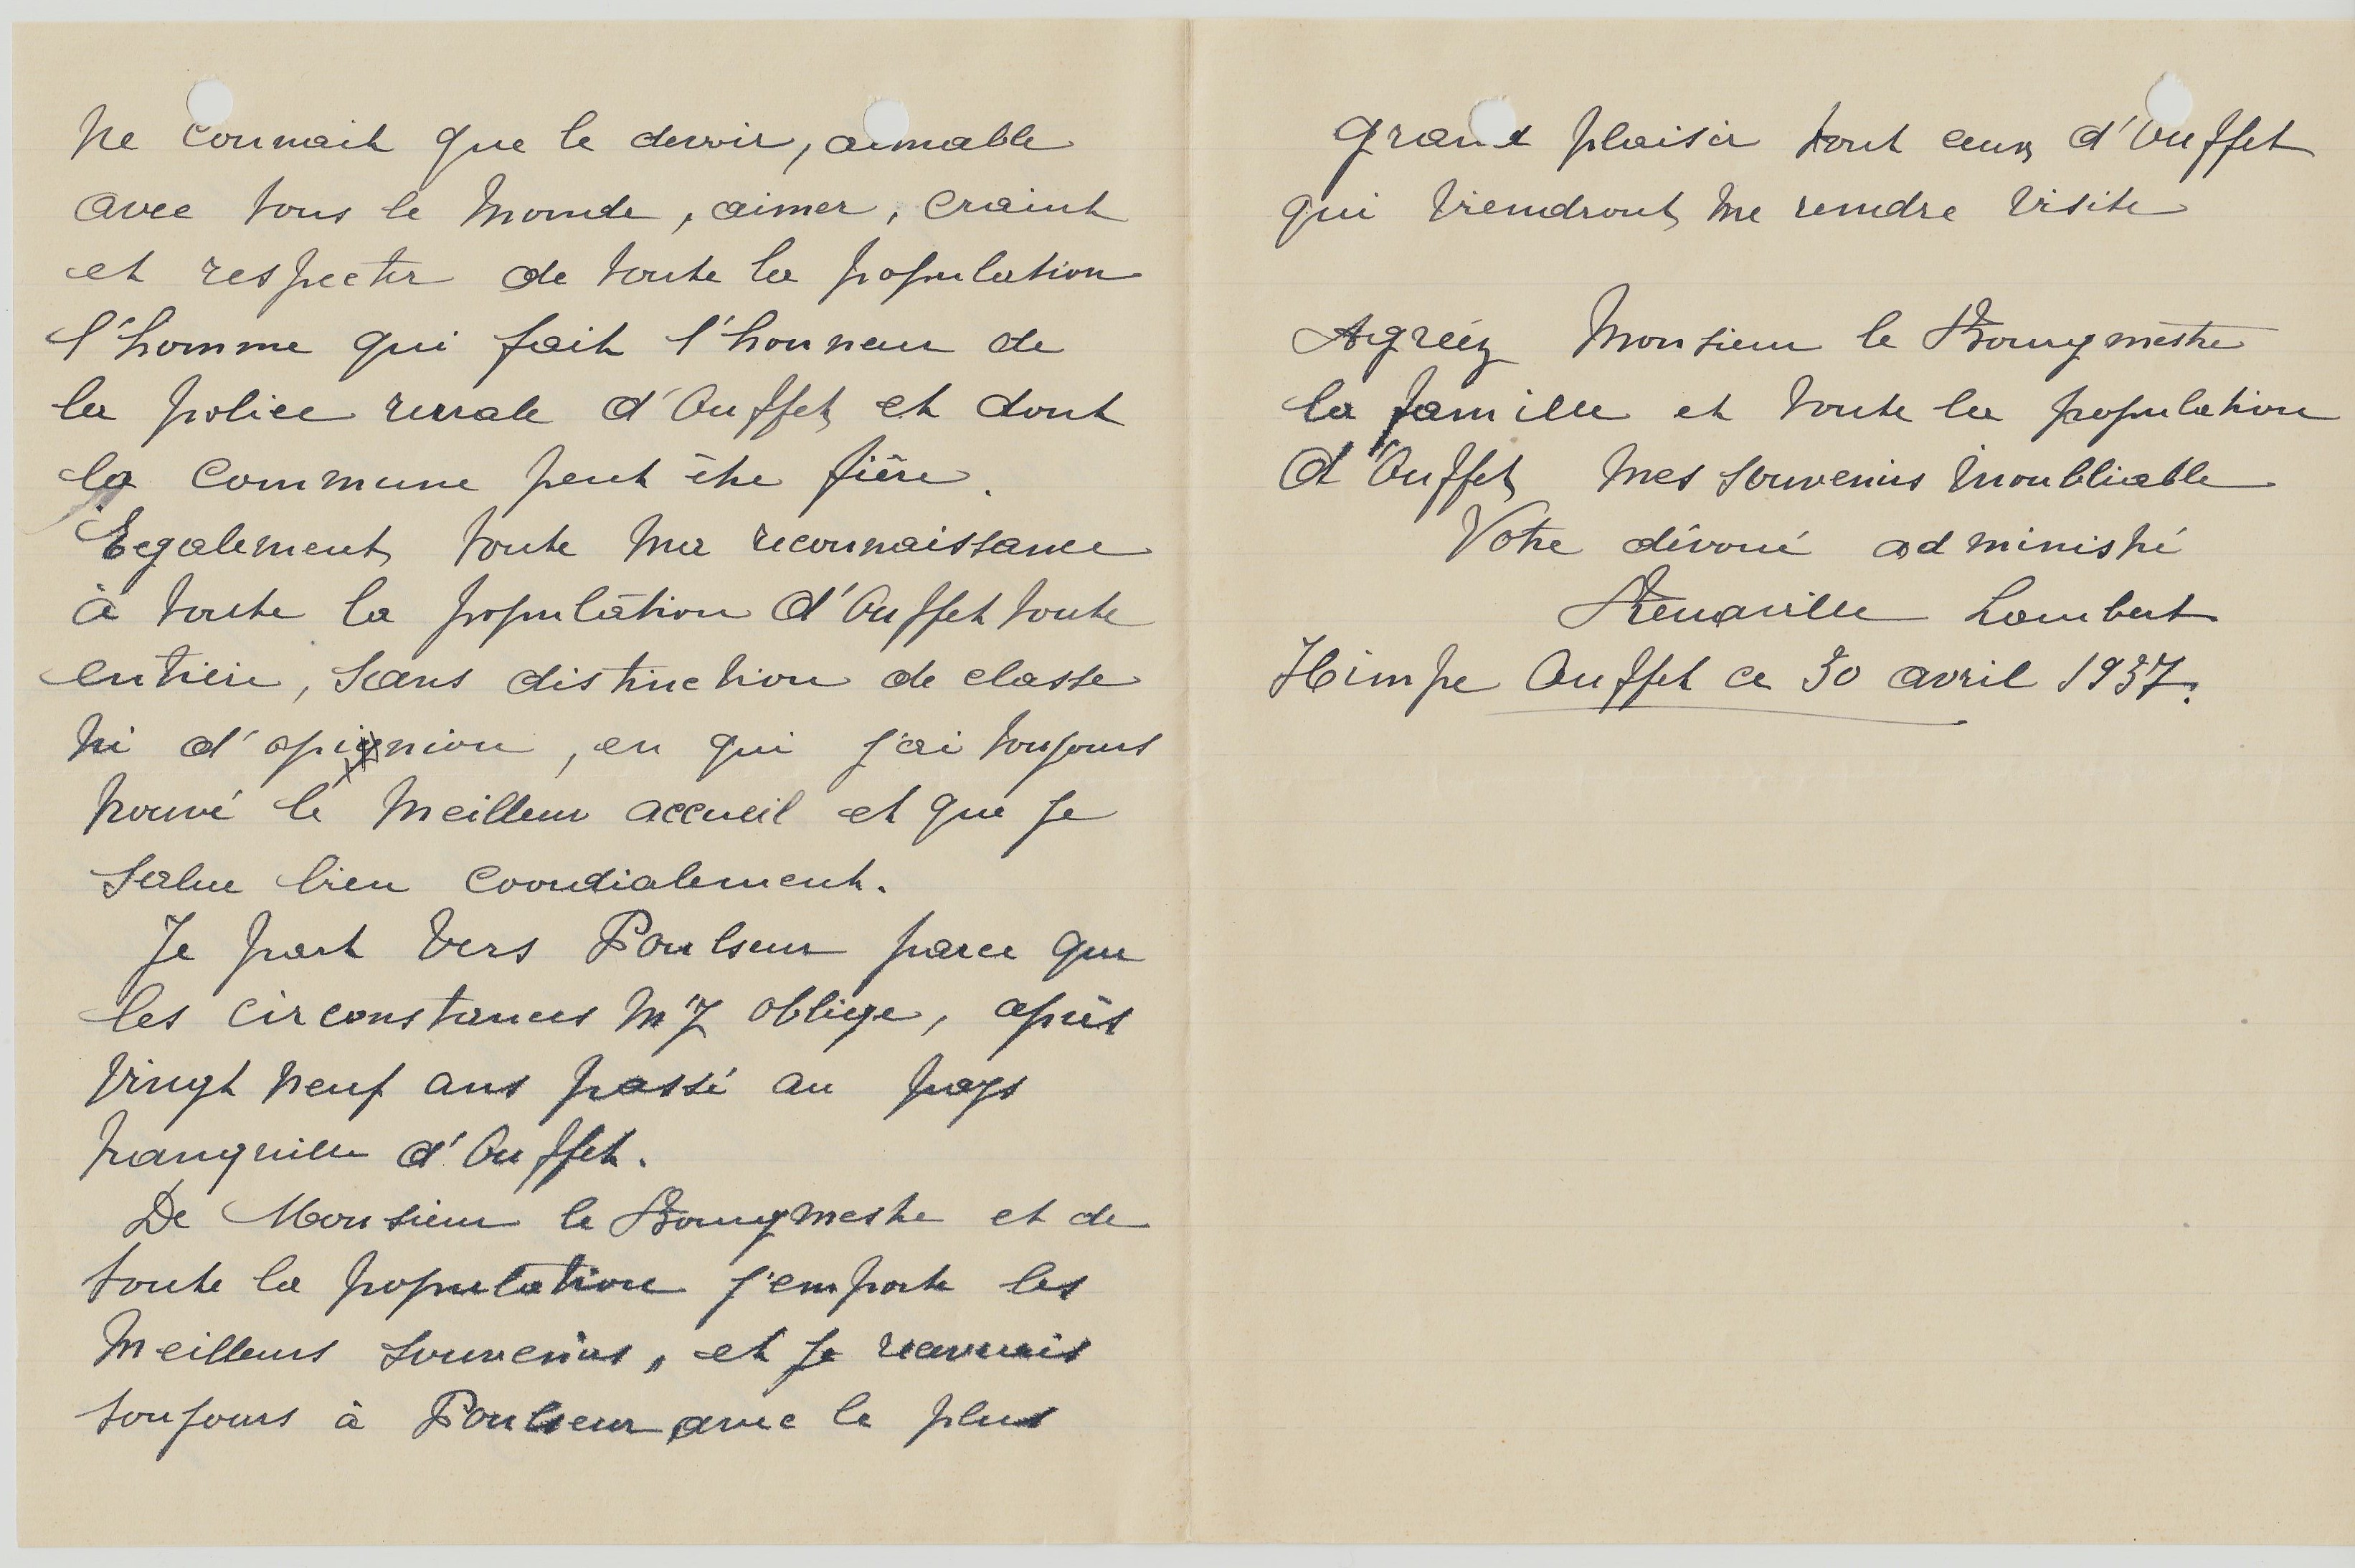 ne connait que le devoir, aimable
avec tous le monde, aimer, craint
et respecter de toute la population
l'homme qui fait l'honneur de
la police rurale d'Ouffet et dont
la commune peut être fière.
Egalement toute ma reconnaissance
à toute la population d'Ouffet toute
entière, sans distinction de classe
ni d'opinion, en qui j'ai toujours
trouvé le meilleur accueil et que je
salue bien coordialement.
Je part vers Poulseur parce que
les circonstances m'y oblige, après
vingt neuf ans passé au pays
tranquille d'Ouffet.
De Monsieur le Bourgmestre et de
toute la population j'emporte les
meilleurs souvenirs, et je recevrais
toujours à Poulseur avec le plus
grand plaisir tout ceux d'Ouffet
qui viendront me rendre visite
Agréez Monsieur le Bourgmestre
la famille et toute la population
d'Ouffet mes souvenirs inoubliable
Votre dévoué administré
Renaville Lambert
Himpe Ouffet ce 30 avril 1937.